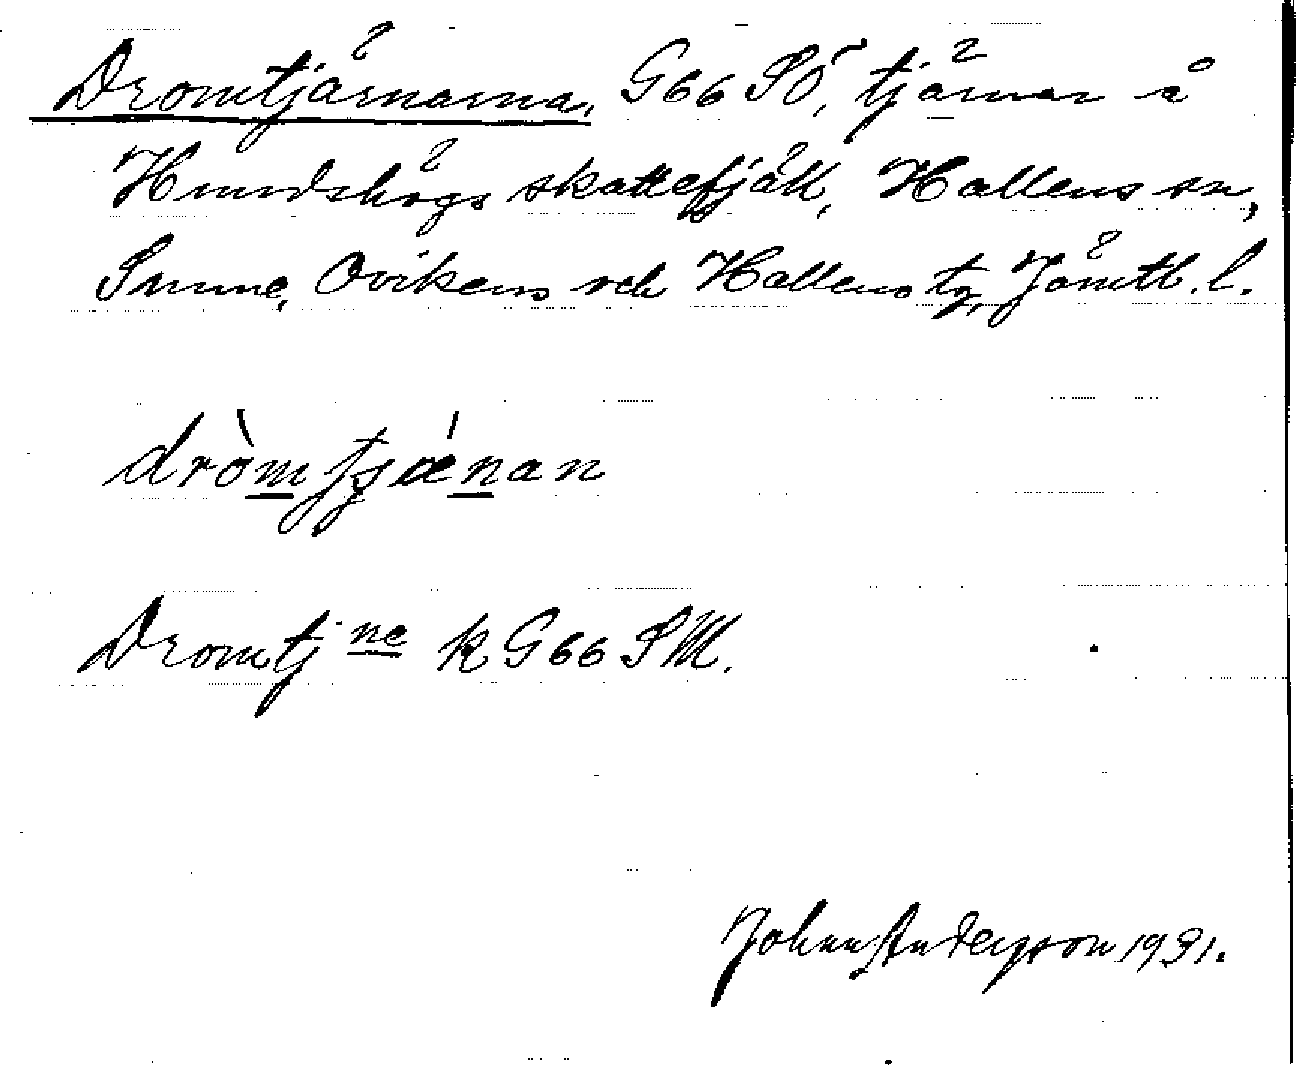 Dromtjärnarna, G66 SÖ, tjärnar å
Hundshögs skattefjäll, Hallens sn,
Sunne, Ovikens och Hallens tg, Jämtl. l.
dròmtjǽnan
Dromtj ne k G66 SM.
Johan Anderson 1931.